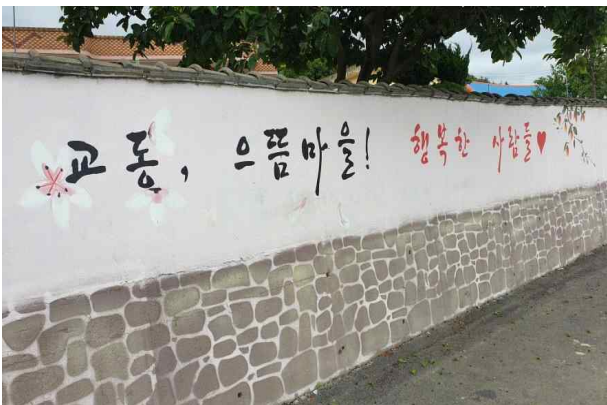 교동, 으뜸마을! 행복한 사람들♥